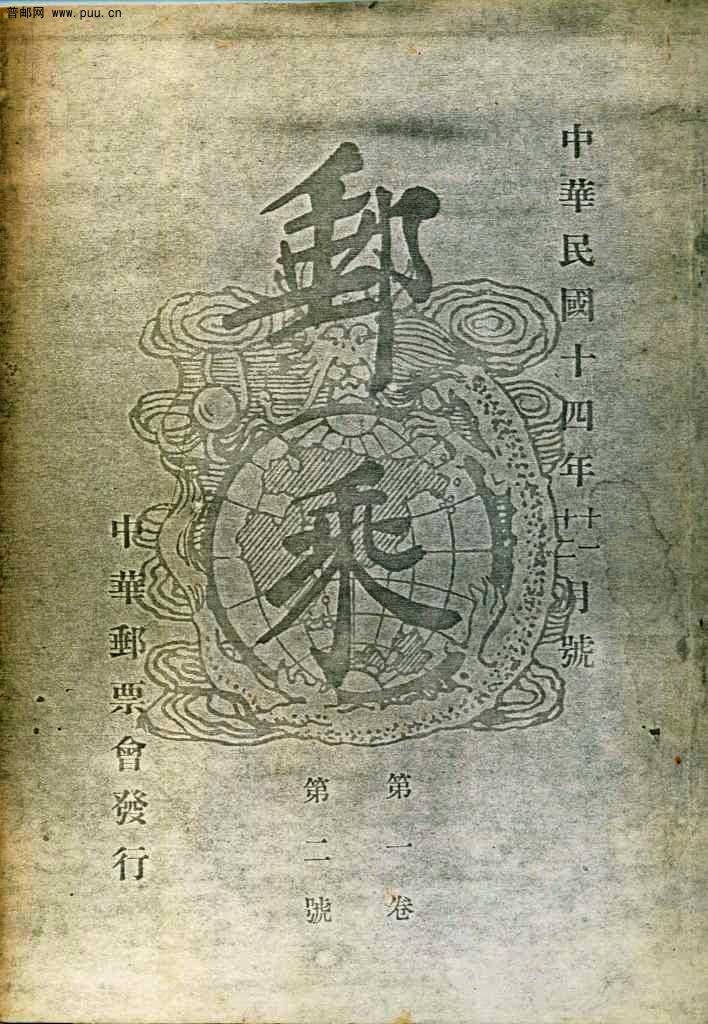 普邮网 www.puu.cn
中華民國十四年十一十二月號
郵乘
第一卷
第二號
中華郵票會發行